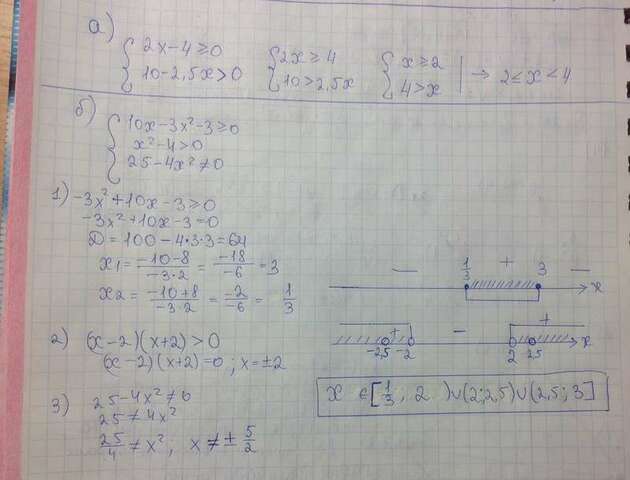 а) { 2x-4≥0 { 2x≥4 { x≥2 | → 2≤x<4
10-2,5x>0 10>2,5x 4>x
б) { 10x-3x²-3≥0
x²-4>0
25-4x²≠0
1) -3x²+10x-3≥0
-3x²+10x-3=0
D=100-4·3·3=64
x1=(-10-8)/(-3·2)=(-18)/(-6)=3
x2=(-10+8)/(-3·2)=(-2)/(-6)=1/3
— 1/3 + 3 — x
2) (x-2)(x+2)>0
(x-2)(x+2)=0; x=±2
+ — +
-2,5 -2 2 2,5 x
3) 25-4x²≠0
25≠4x²
25/4≠x², x≠±5/2
x ∈[1/3, 2 )∪(2;2,5)∪(2,5;3]